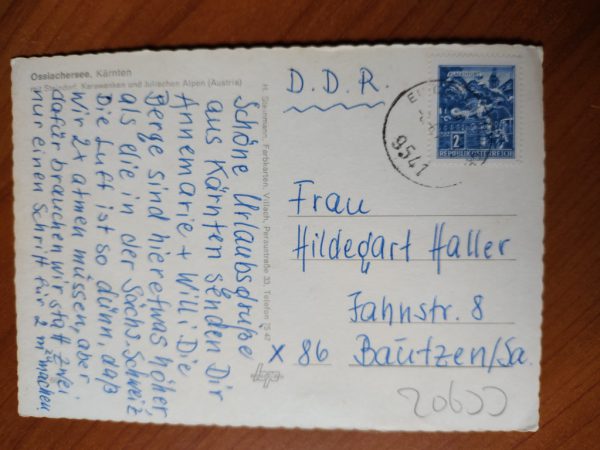 Ossiachersee, Kärnten
mit Steindorf, Karawanken und Julischen Alpen (Austria)
Schöne Urlaubsgrüße
aus Kärnten senden Dir
Annemarie + Willi Die
Berge sind hier etwas höher,
als die in der Sächs. Schweiz
Die Luft ist so dünn, daß
wir 2x atmen müssen, aber
dafür brauchen wir statt zwei
nur einen Schritt für 2 m machen.
H. Steinmann, Farbkarten, Villach, Peraustraße 33, Telefon
D.D.R.
KLAGENFURT
2
REPUBLIK ÖSTERREICH
9541
Frau
Hildegart Haller
Jahnstr. 8
X 86 Bautzen/Sa.